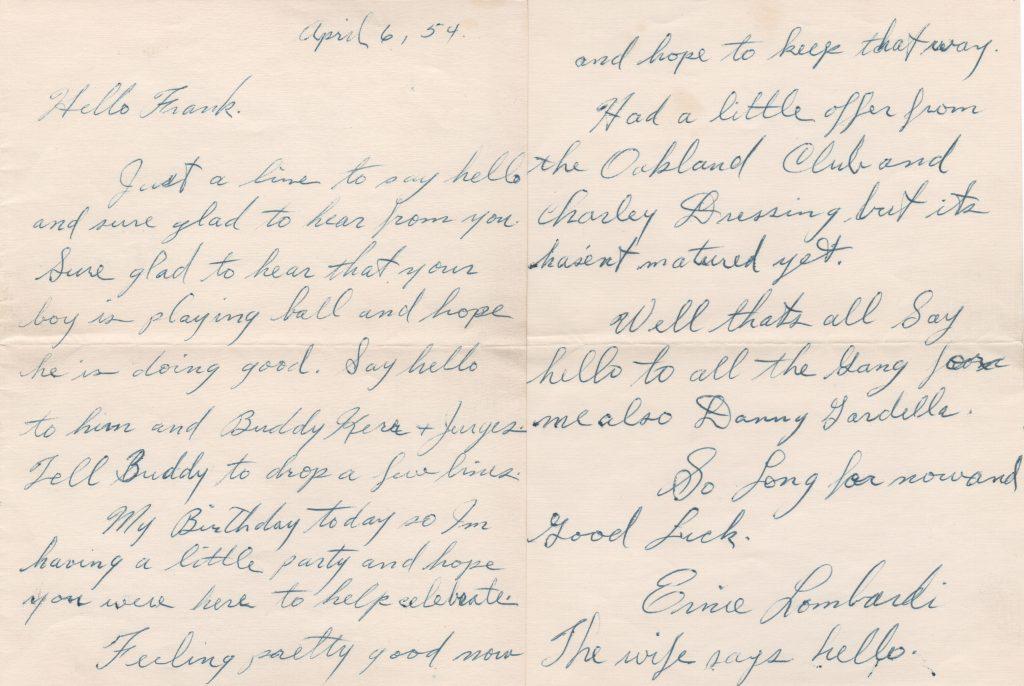 April 6, 54.
Hello Frank.
Just a line to say hello
and sure glad to hear from you.
Sure glad to hear that your
boy is playing ball and hope
he is doing good. Say hello
to him and Buddy Kerr + Jurges.
Tell Buddy to drop a few lines.
My Birthday today so Im
having a little party and hope
you were here to help celebrate.
Feeling pretty good now
and hope to keep that way.
Had a little offer from
the Oakland Club and
Charley Dressing but its
hasent matured yet.
Well thats all Say
hello to all the Gang for
me also Danny Gardella.
So Long for now and
Good Luck.
Ernie Lombardi
The wife says hello.